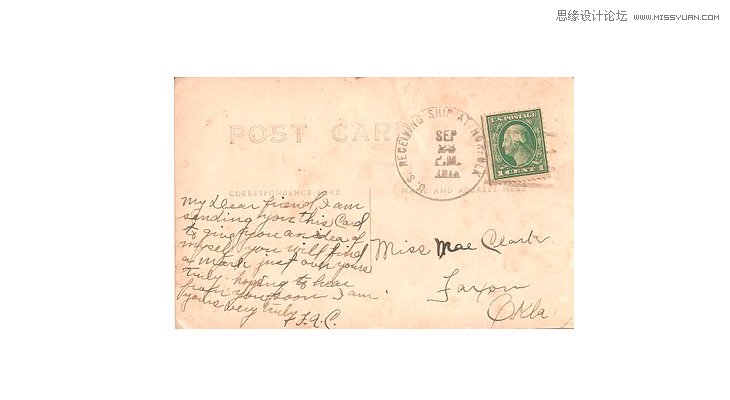 思缘设计论坛 WWW.MISSYUAN.COM
POST CARD
U.S. RECEIVING SHIP AT NORFOLK
SEP
U.S. POSTAGE
1 CENT 1
CORRESPONDENCE HERE
NAME AND ADDRESS HERE
My Dear friend, I am
sending you this Card
to give you an idea of
myself you will find
a mark just over yours
truly. hoping to hear
from you soon I am.
yours very truly
F.A.C.
Miss Mae Clark
Faxon
Okla